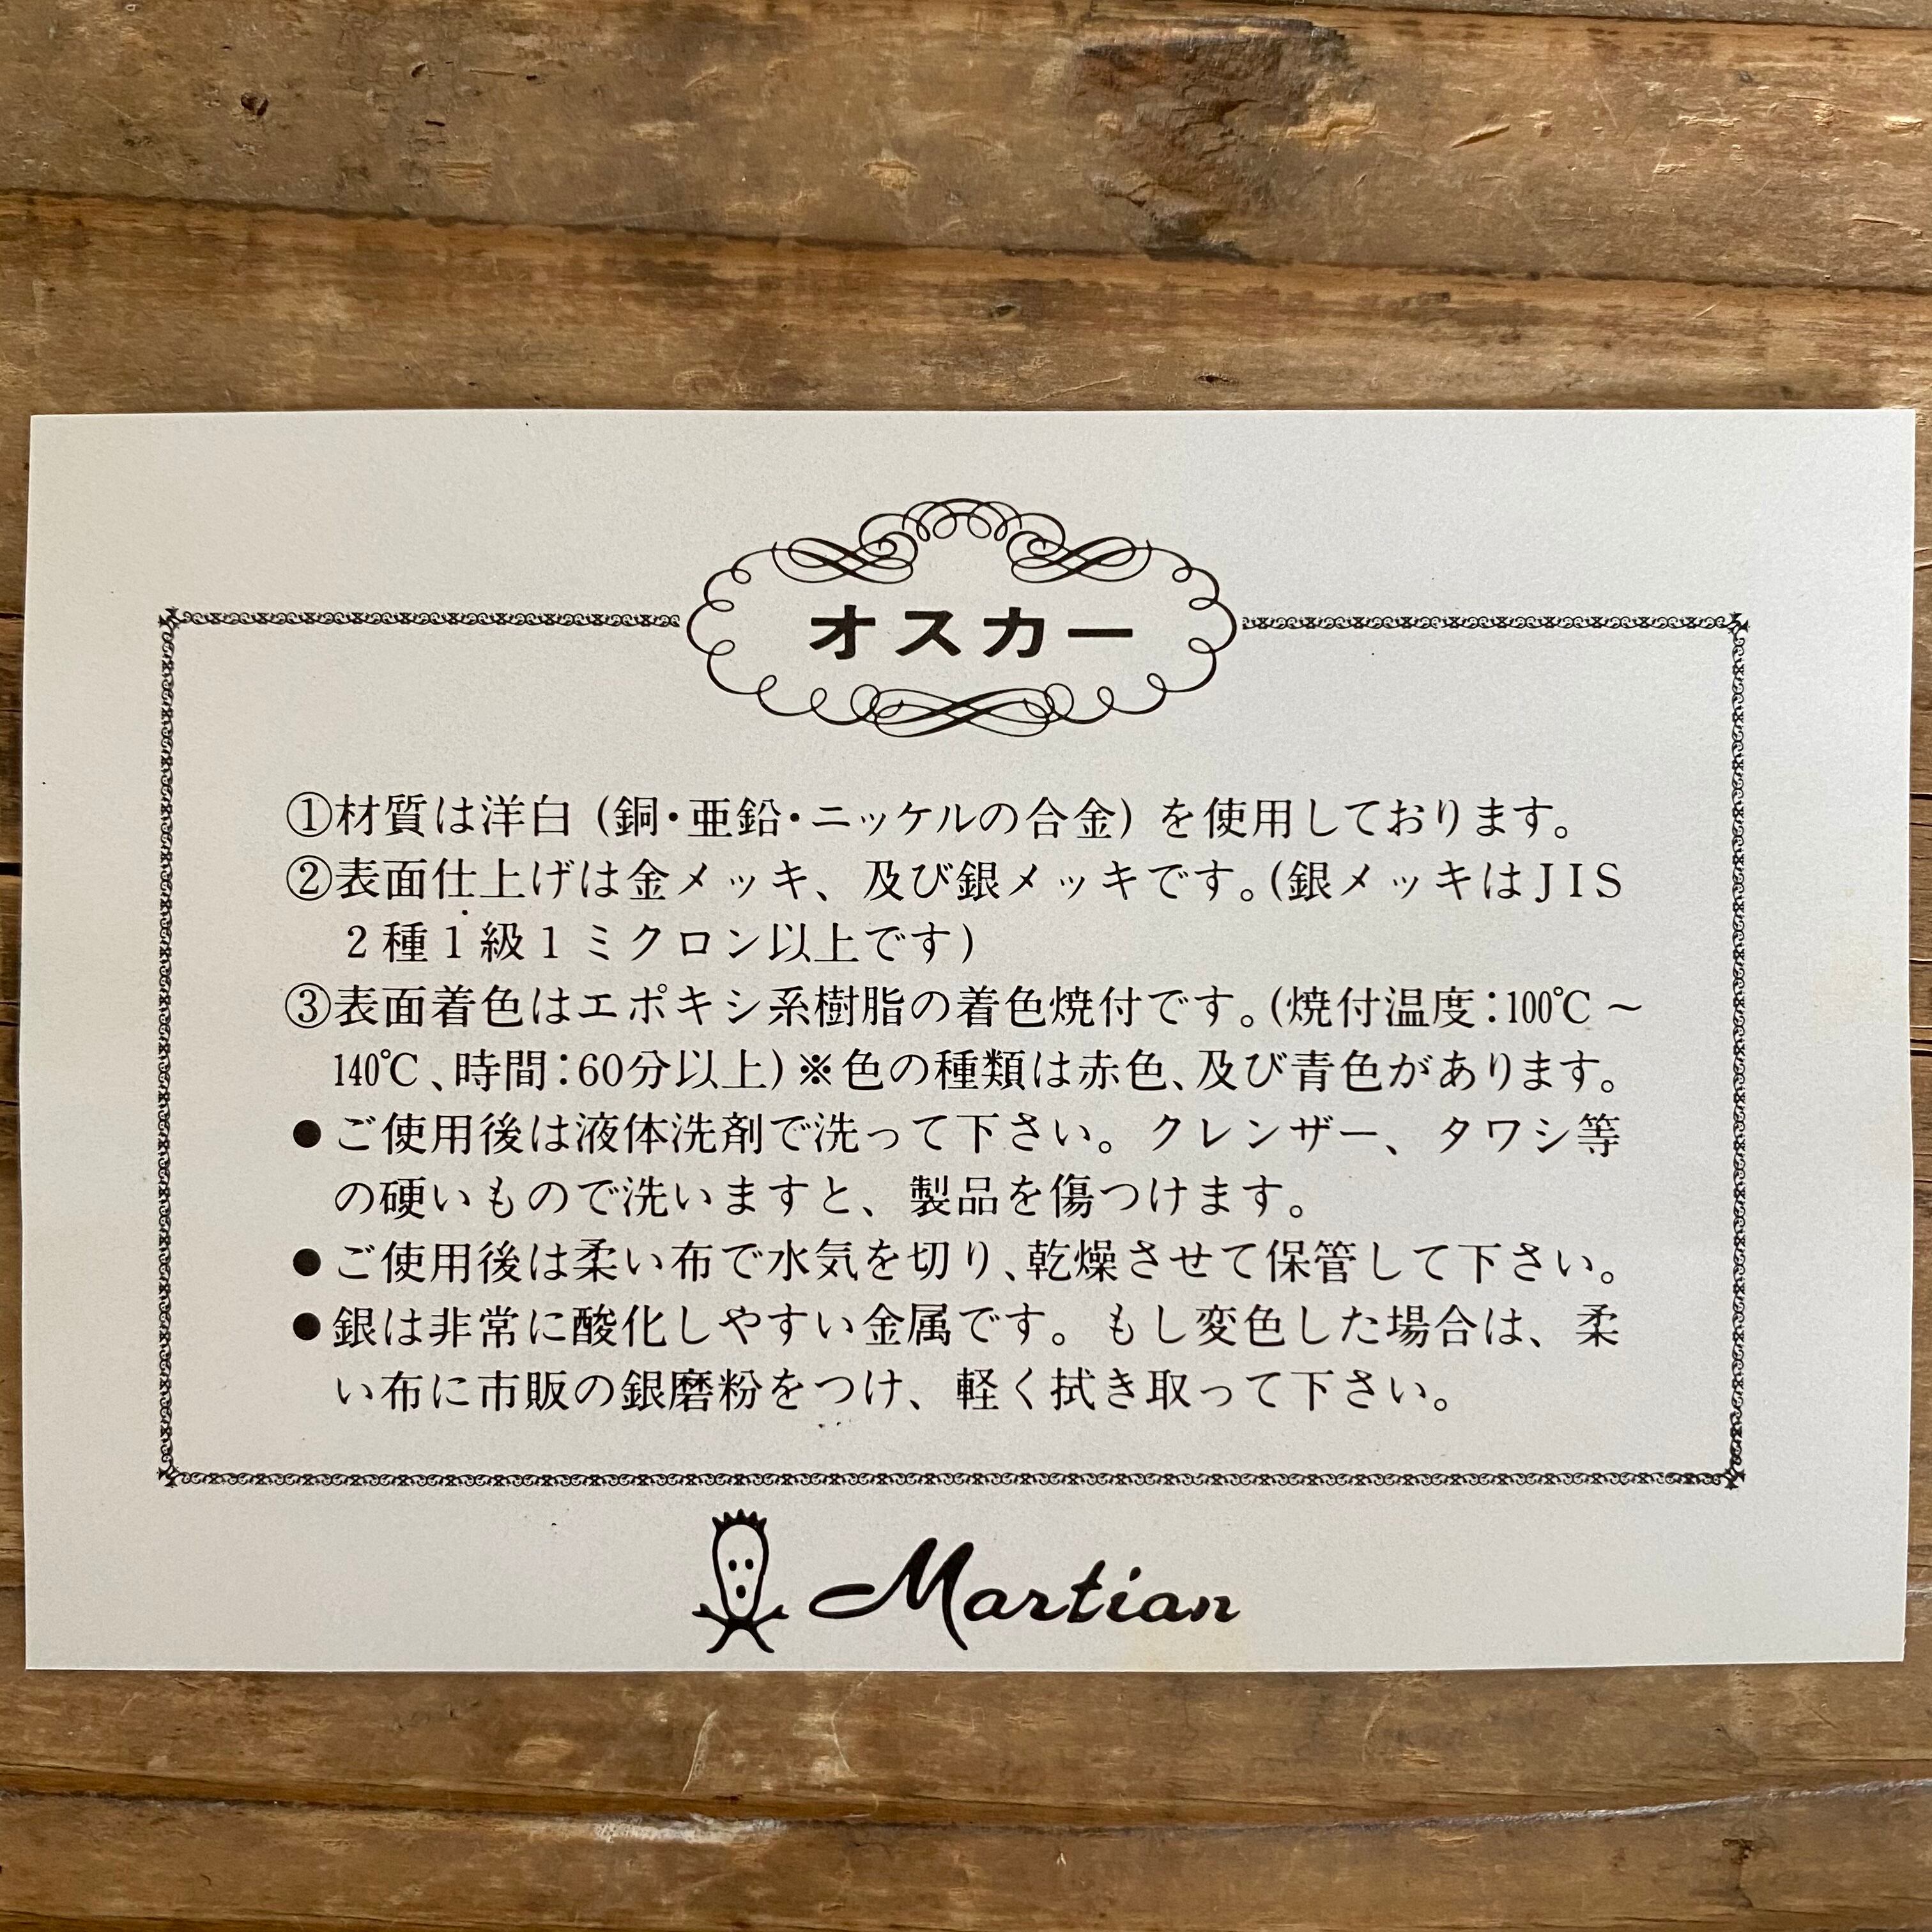 オスカー
①材質は洋白(銅・亜鉛・ニッケルの合金)を使用しております。
②表面仕上げは金メッキ、及び銀メッキです。(銀メッキはJIS
2種1級1ミクロン以上です)
③表面着色はエポキシ系樹脂の着色焼付です。(焼付温度:100℃~
140℃、時間:60分以上)※色の種類は赤色、及び青色があります。
●ご使用後は液体洗剤で洗って下さい。クレンザー、タワシ等
の硬いもので洗いますと、製品を傷つけます。
●ご使用後は柔い布で水気を切り、乾燥させて保管して下さい。
●銀は非常に酸化しやすい金属です。もし変色した場合は、柔
い布に市販の銀磨粉をつけ、軽く拭き取って下さい。
Martian